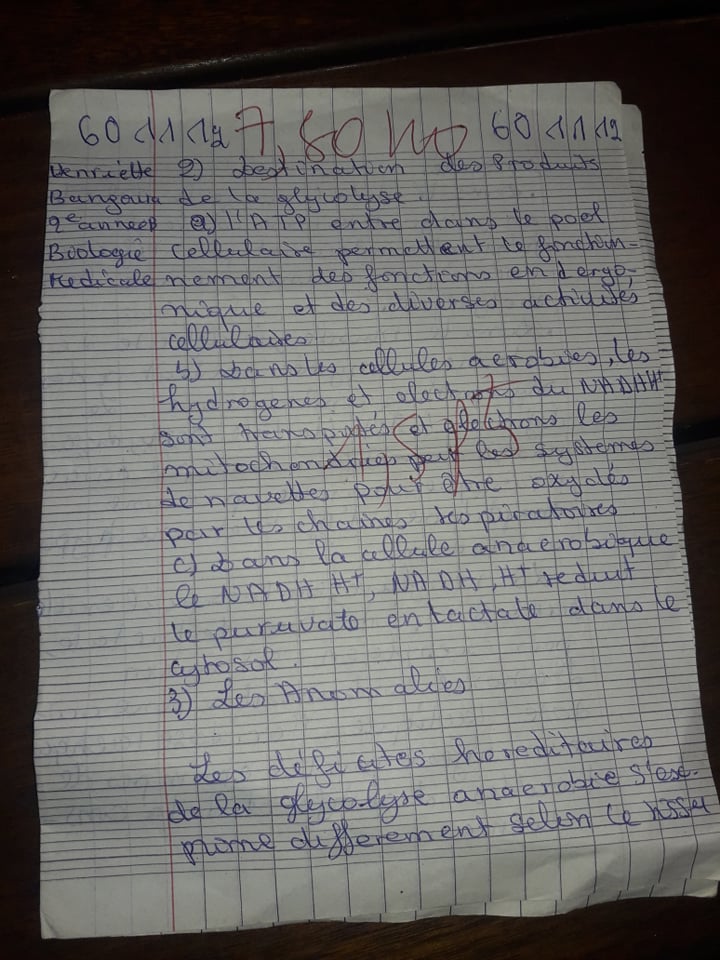 60 11 12 7,50 60 11 12
Henriette 2) Destination des Produits
Bangoura de la glycolyse.
2e année a) l'ATP entre dans le pool
Biologie cellulaire permettent le fonction-
Médicale nement des fonctions endergo-
nique et des diverses activités
cellulaires
b) Dans les cellules aerobies, les
hydrogenes et electrons du NADHH+
sont transportés et les
mitochondries par les systemes
de navettes pour être oxydés
par les chaines respiratoires
c) Dans la cellule anaerobique
le NADH H+, NADH, H+ reduit
le puruvate en tactate dans le
cytosol.
3) Les Anomalies
Les déficites hereditaires
de la glycolyse anaerobie s'exe-
prome differement selon le tissu